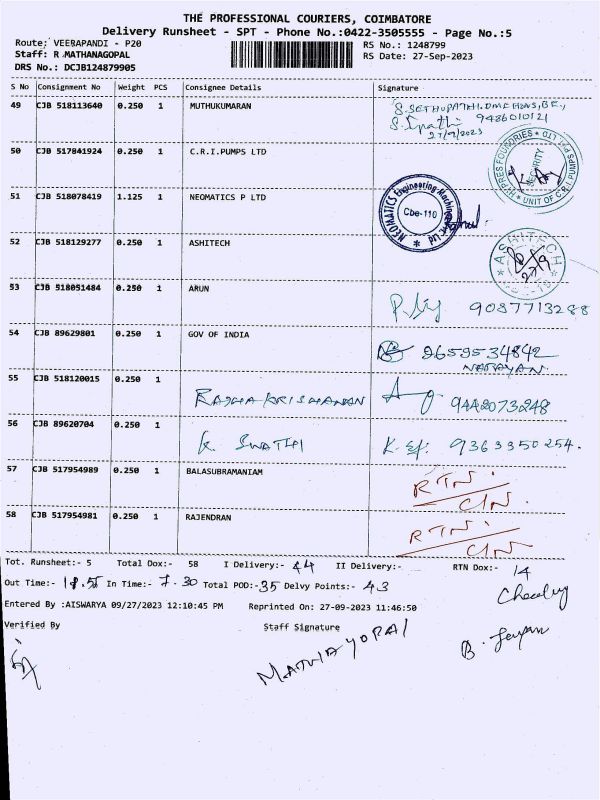 THE PROFESSIONAL COURIERS, COIMBATORE
Delivery Runsheet - SPT - Phone No.:0422-3505555 - Page No.:5
Route: VEERAPANDI - P20
Staff: R MATHANAGOPAL
DRS No.: DCJB124879905
RS No.: 1248799
RS Date: 27-Sep-2023
S No Consignment No Weight PCS Consignee Details Signature
49 CJB 518113640 0.250 1 MUTHUKUMARAN
9486010121
27/9/2023
50 CJB 517841924 0.250 1 C.R.I.PUMPS LTD
SECURITY
UNIT OF C.R.I. PUMPS PVT. LTD
51 CJB 518078419 1.125 1 NEOMATICS P LTD
NEOMATICS Engineering Machines Pvt Ltd
Cbe-110
52 CJB 518129277 0.250 1 ASHITECH
ASHITECH
27/9
53 CJB 518051484 0.250 1 ARUN
9087713288
54 CJB 89629801 0.250 1 GOV OF INDIA
9659534842
NARAYAN
55 CJB 518120015 0.250 1
RADHA KRISHANAN 9442073248
56 CJB 89620704 0.250 1
K SWATHI 9363350254.
57 CJB 517954989 0.250 1 BALASUBRAMANIAM
RTN.
58 CJB 517954981 0.250 1 RAJENDRAN
RTN.
Tot. Runsheet:- 5 Total Dox:- 58 I Delivery:- 44 II Delivery:- RTN Dox:- 14
Out Time:- In Time:- 7.30 Total POD:- 35 Delvy Points:- 43
Entered By :AISWARYA 09/27/2023 12:10:45 PM Reprinted On: 27-09-2023 11:46:50
Verified By Staff Signature